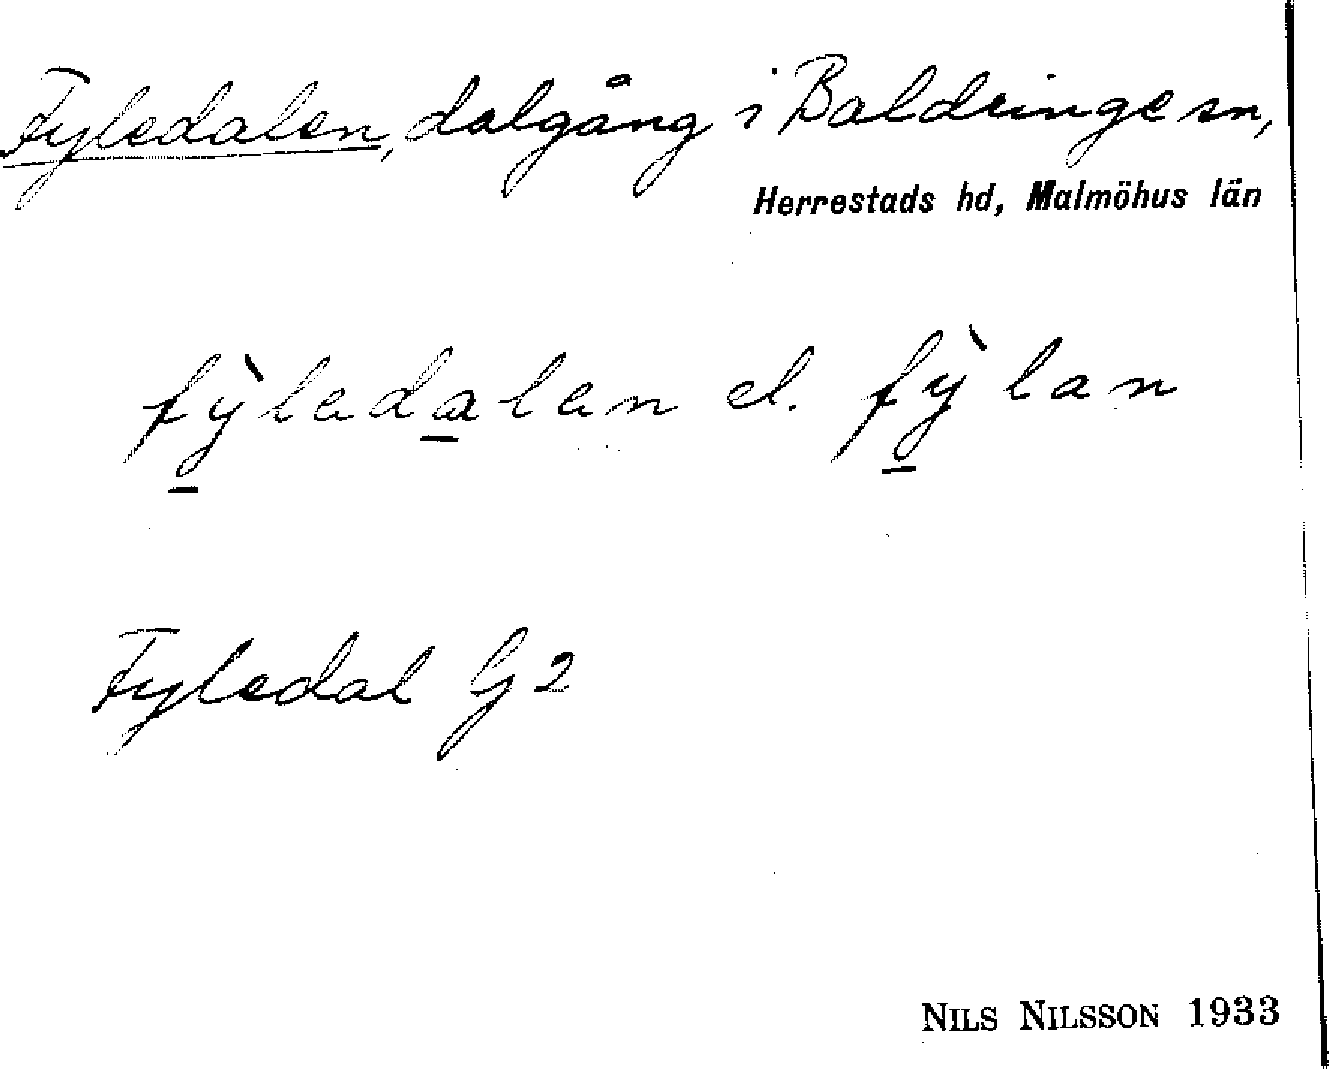 Fyledalen, dalgång i Baldringe sn,
Herrestads hd, Malmöhus län
fỳledalen el. fỳlan
Fyledal G2
NILS NILSSON 1933